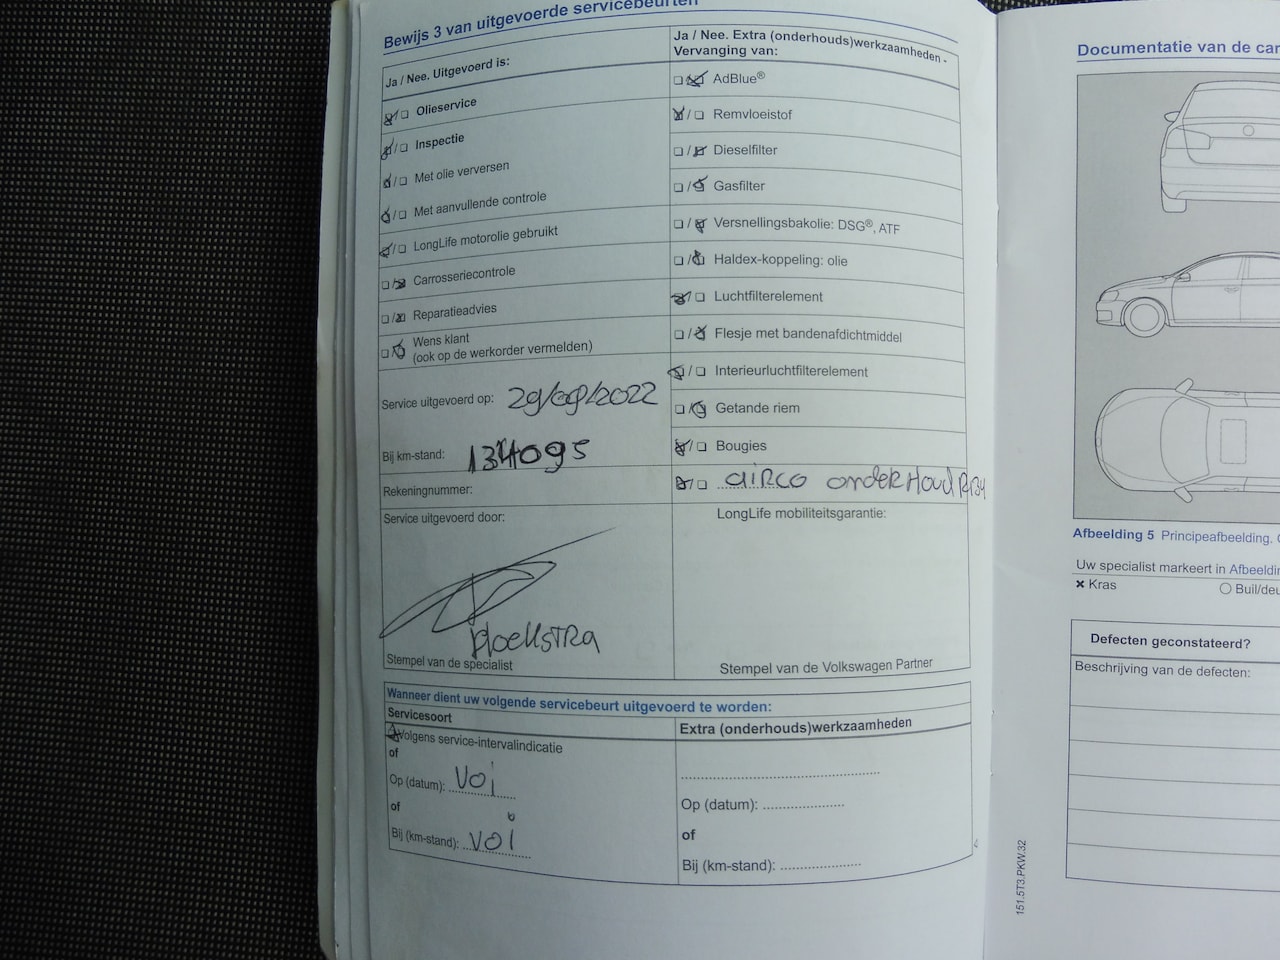 Bewijs 3 van uitgevoerde servicebeurten
Ja / Nee. Uitgevoerd is:
Olieservice
Inspectie
Met olie verversen
Met aanvullende controle
LongLife motorolie gebruikt
Carrosseriecontrole
Reparatieadvies
Wens klant
(ook op de werkorder vermelden)
Service uitgevoerd op: 29/09/2022
Bij km-stand: 134095
Rekeningnummer:
Service uitgevoerd door:
Hoekstra
Stempel van de specialist
Ja / Nee. Extra (onderhouds)werkzaamheden -
Vervanging van:
AdBlue®
Remvloeistof
Dieselfilter
Gasfilter
Versnellingsbakolie: DSG®, ATF
Haldex-koppeling: olie
Luchtfilterelement
Flesje met bandenafdichtmiddel
Interieurluchtfilterelement
Getande riem
Bougies
airco onderhoud R134
LongLife mobiliteitsgarantie:
Stempel van de Volkswagen Partner
Wanneer dient uw volgende servicebeurt uitgevoerd te worden:
Servicesoort
Volgens service-intervalindicatie
of
Op (datum): voi
of
Bij (km-stand): voi
Extra (onderhouds)werkzaamheden
Op (datum):
of
Bij (km-stand):
4
151.5T3.PKW.32
Documentatie van de car
Afbeelding 5 Principeafbeelding.
Uw specialist markeert in Afbeeldin
Kras
Buil/deu
Defecten geconstateerd?
Beschrijving van de defecten: